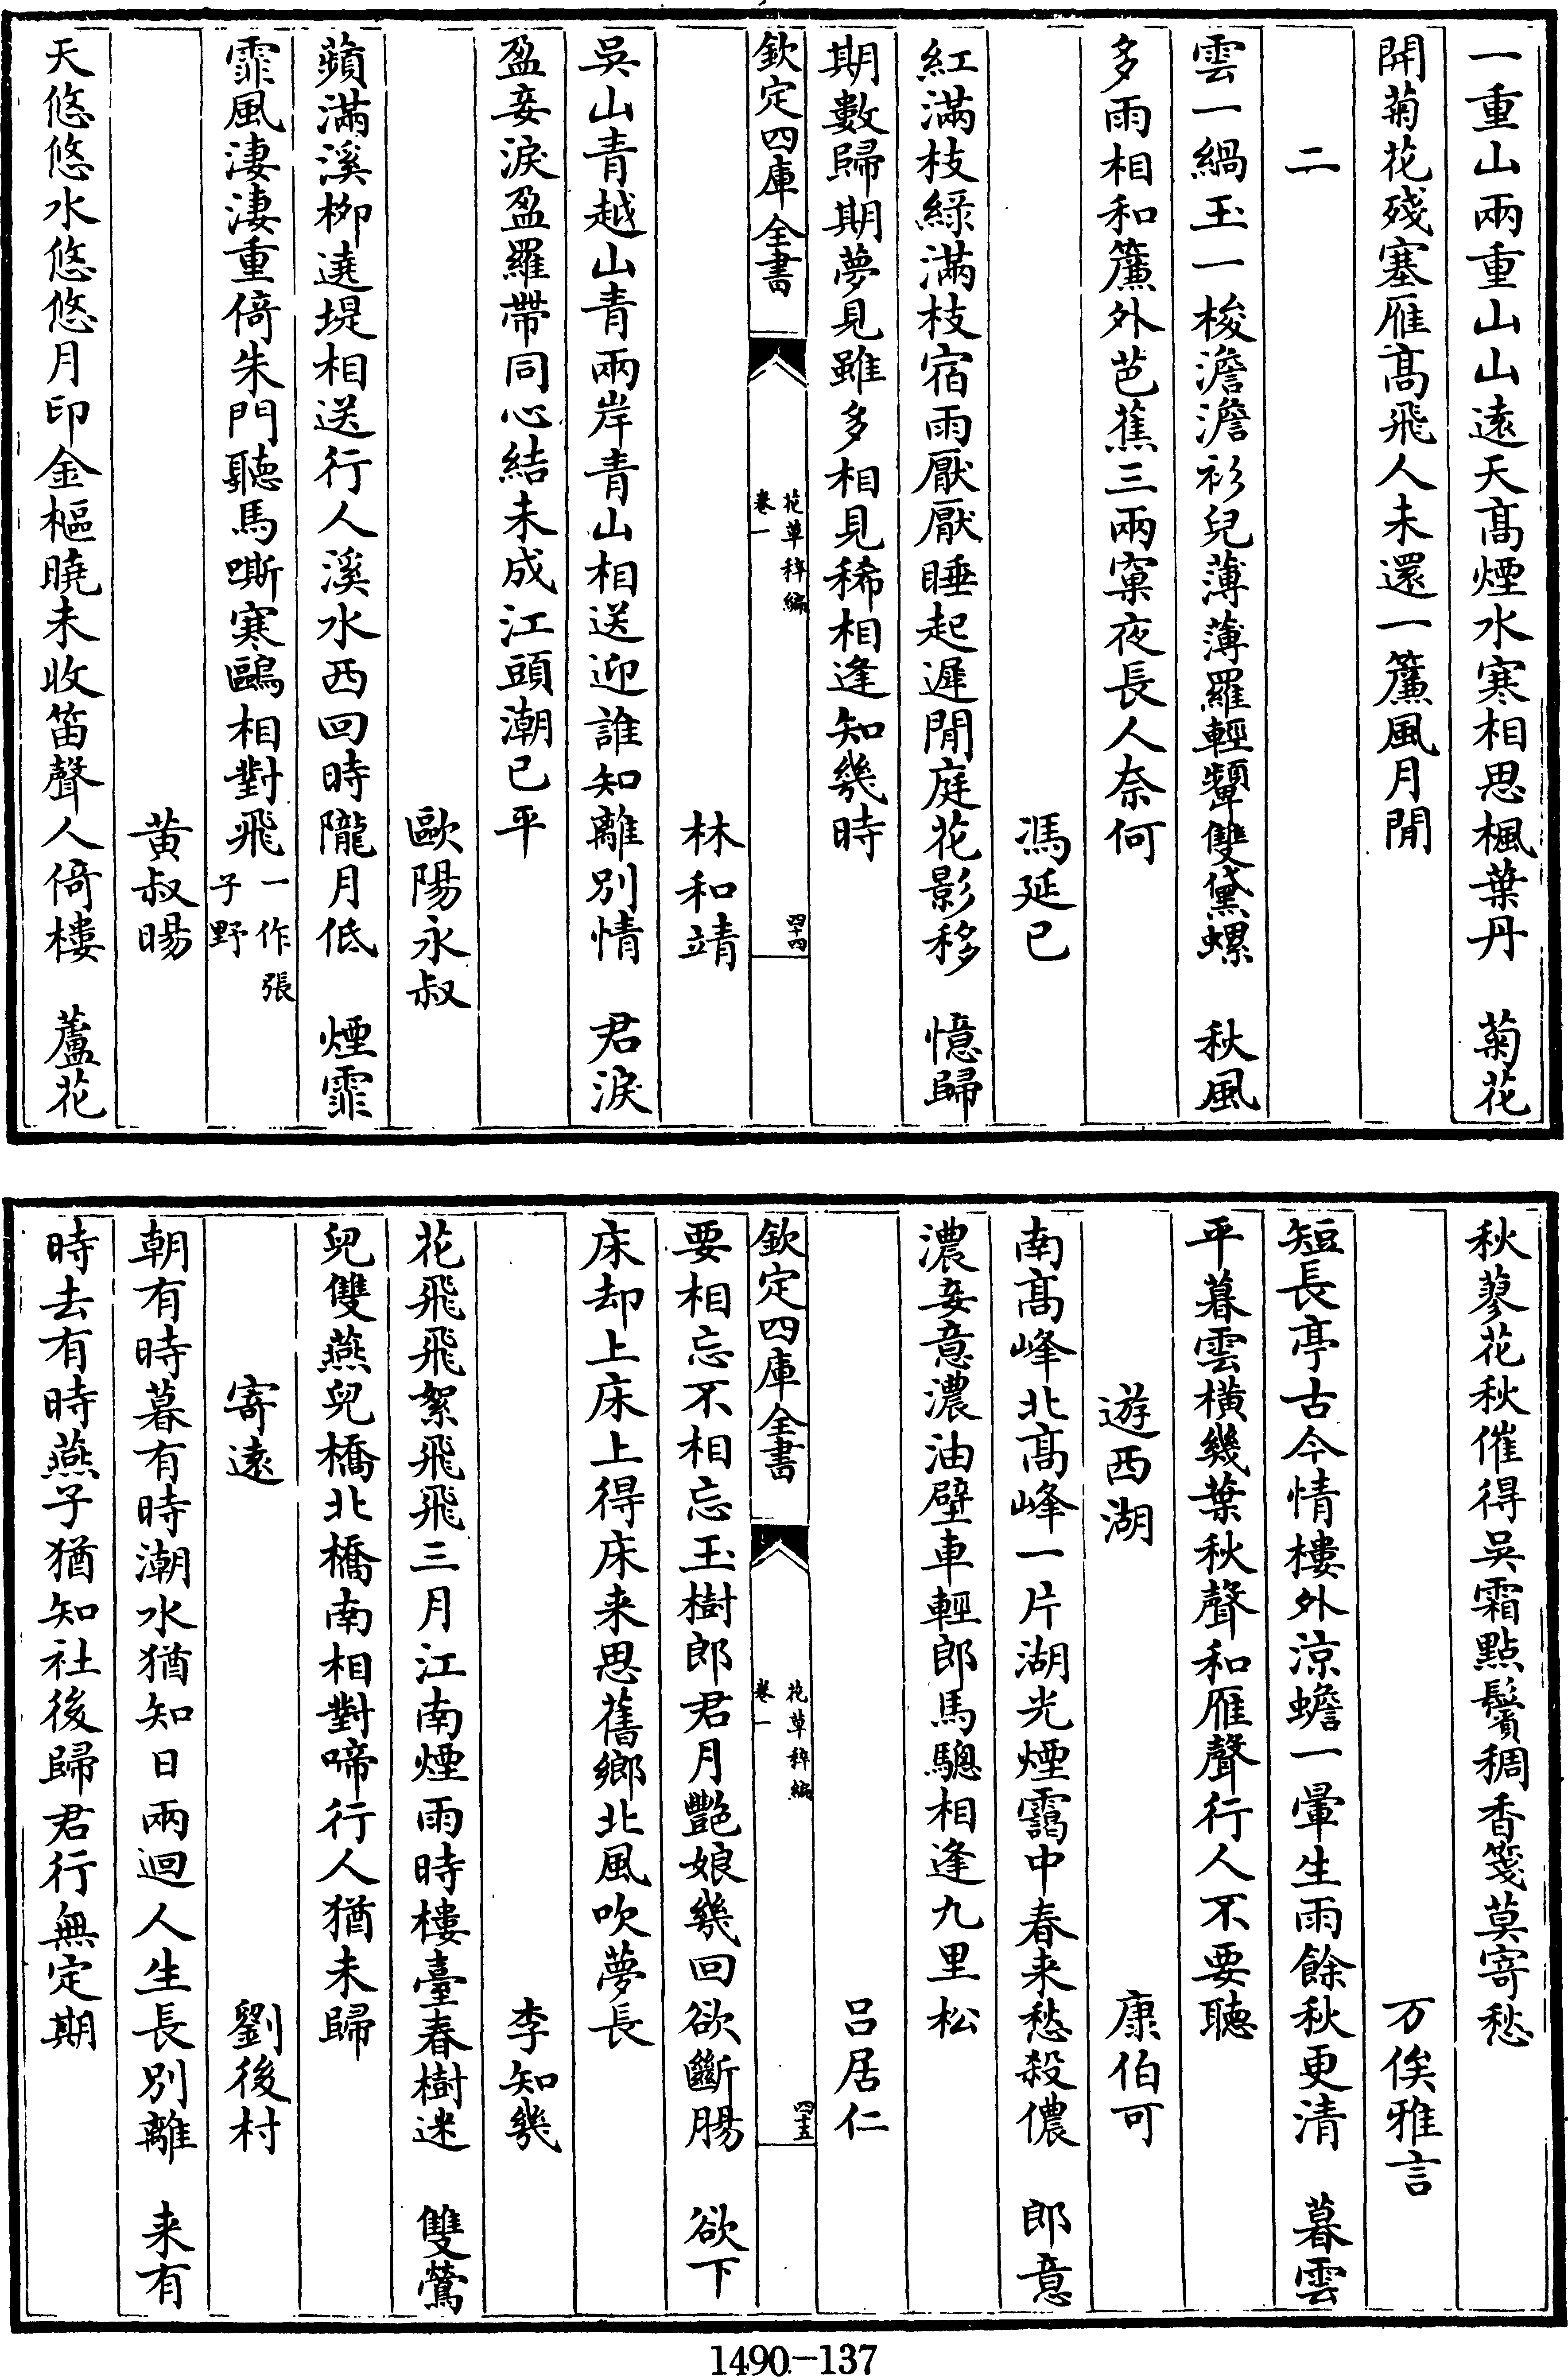 一重山兩重山山遠天髙煙水寒相思楓葉丹　菊花
開菊花殘塞雁髙飛人未還一簾風月閒
二
雲一緺玉一梭澹澹衫兒薄薄羅輕顰雙黛螺　秋風
多雨相和簾外芭蕉三兩窠夜長人奈何
馮延已
紅滿枝綠滿枝宿雨厭厭睡起遲閒庭花影移　憶歸
期數歸期夢見雖多相見稀相逢知幾時
欽定四庫全書
花草稡編
卷一
四十四
林和靖
吳山青越山青兩岸青山相送迎誰知離別情　君淚
盈妾淚盈羅帶同心結未成江頭潮已平
歐陽永叔
蘋滿溪栁遶堤相送行人溪水西回時隴月低　煙霏
霏風淒淒重倚朱門聽馬嘶寒鷗相對飛一作張子野
黃叔暘
天悠悠水悠悠月印金樞曉未收笛聲人倚樓　蘆花
秋蓼花秋催得吳霜點鬢稠香箋莫寄愁
万俟雅言
短長亭古今情樓外涼蟾一暈生雨餘秋更清　暮雲
平暮雲橫幾葉秋聲和雁聲行人不要聽
遊西湖　康伯可
南髙峰北髙峰一片湖光煙靄中春来愁殺儂　郎意
濃妾意濃油壁車輕郎馬驄相逢九里松
呂居仁
欽定四庫全書
花草稡編
卷一
四十五
要相忘不相忘玉樹郎君月艷娘幾回欲斷腸　欲下
床却上床上得床来思舊鄉北風吹夢長
李知幾
花飛飛絮飛飛三月江南煙雨時樓臺春樹迷　雙鶯
兒雙燕兒橋北橋南相對啼行人猶未歸
寄遠　劉後村
朝有時暮有時潮水猶知日兩迴人生長別離　来有
時去有時燕子猶知社後歸君行無定期
1490-137